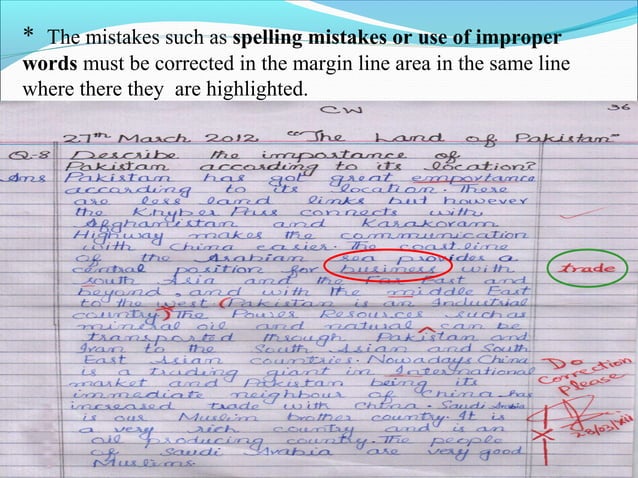 * The mistakes such as spelling mistakes or use of improper
words must be corrected in the margin line area in the same line
where there they are highlighted.
CW 36
27th March 2012 "The Land of Pakistan"
Q-8 Describe the importance of
Pakistan according to its location?
Ans Pakistan has got great emportance
according to its location. There
are less land links but however
the Khyber Pass connects with
Afghanistan and Karakoram
Highway makes the communication
with China easier. The coastline
of the Arabian sea provides a
central position for business with trade
south Asia and the Far East and
beyond, and with the middle East
to the west. (Pakistan is an Industrial
country) The Power Resources such as
mineral oil and natural can be
transported through Pakistan and
Iran to the South Asian and South
East Asian countries. Nowadays China
is a trading giant in International
market and Pakistan being its
immediate neighbour of China has
increased trade with China. Saudi Arabia
is our Muslim brother country. It is
a very rich country and is an
oil producing country. The people
of Saudi Arabia are very good
Muslims.
Do
Correction
please
28/03/XII